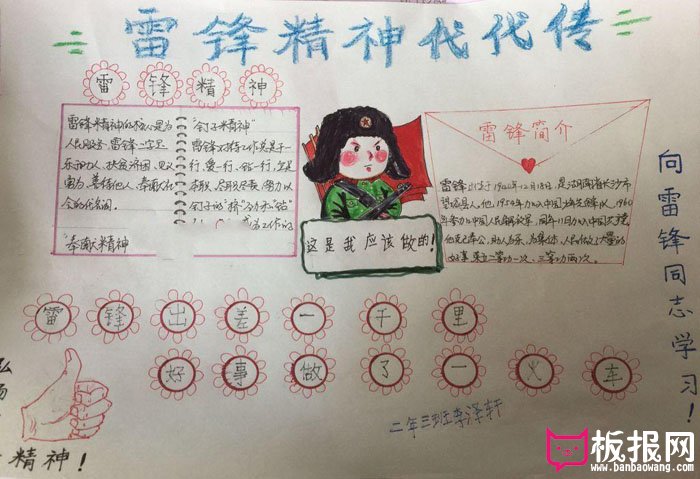 雷锋精神代代传
雷锋精神
雷锋精神的核心是为
人民服务,雷锋二字是
乐于助人、扶贫济困、见义
勇为、善待他人、奉献社
会的代名词。
"奉献精神
"钉子精神"
雷锋对待工作总是干一
行、爱一行、钻一行,
钉子的"挤"劲和"钻"
这是我应该做的!
雷锋简介
雷锋出生于1940年12月18日,是湖南省长沙市
望城县人。他,1954年加入中国少年先锋队,1960
年参加中国人民解放军,同年11月加入中国共产党
他克己奉公,助人为乐,为集体、人民做了大量的
好事,二等功一次、三等功两次。
向雷锋同志学习!
雷锋出差一千里
好事做了一火车
弘
扬
精神!
二年三班李泽轩
板报网
www.banbaowang.com